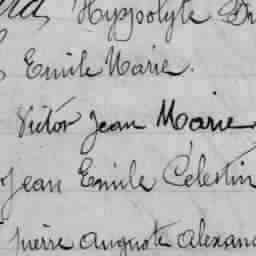 Hyppolyte
Emile Marie.
Victor Jean Marie
Jean Emile Célestin
Pierre Auguste Alexan